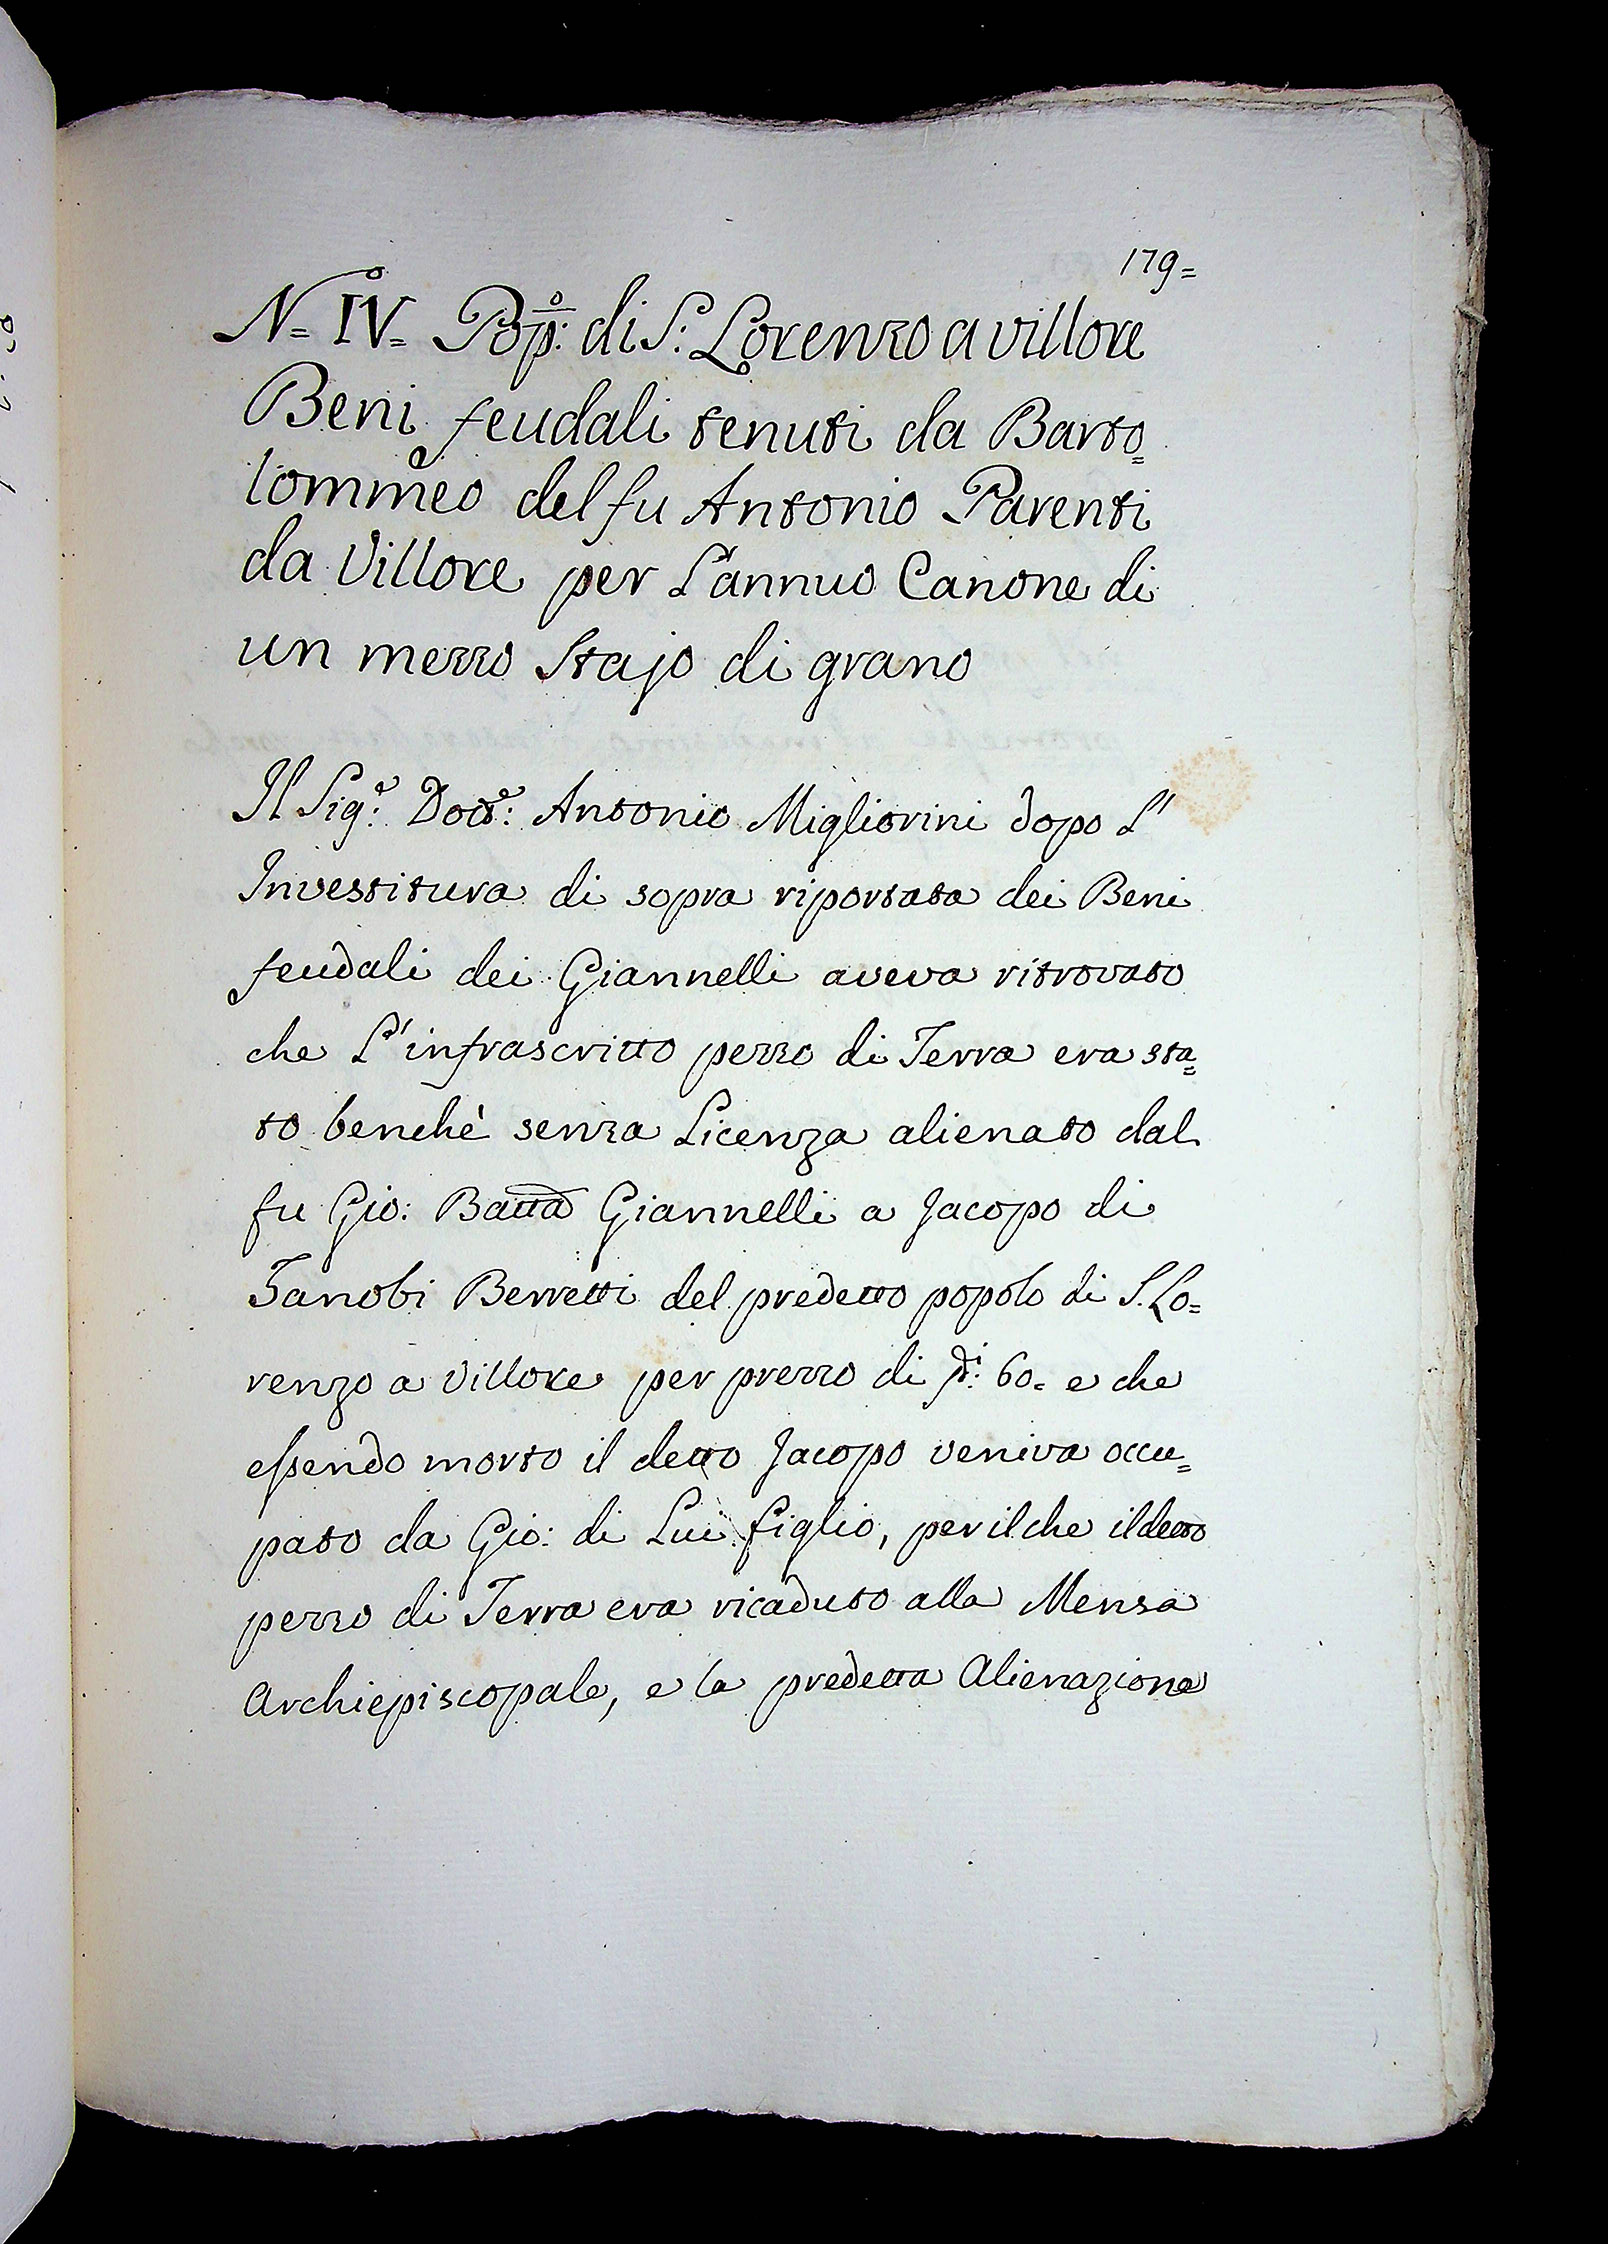 179=
N.° IV= Pop.°: di S: Lorenzo a Villore
Beni feudali tenuti da Barto=
lommeo del fu Antonio Parenti
da Villore per L'annuo Canone di
un mezzo Stajo di grano
Il Sig.e: Dott.e: Antonio Migliorini dopo L'
Investitura di sopra riportata dei Beni
feudali dei Giannelli aveva ritrovato
che L'infrascritto pezzo di Terra era sta=
to benchè senza Licenza alienato dal
fu Gio: Batta Giannelli a Jacopo di
Zanobi Berretti del predetto popolo di S. Lo=
renzo a Villore per prezzo di 60= e che
essendo morto il detto Jacopo veniva occu=
pato da Gio: di Lui figlio, per il che il detto
pezzo di Terra era ricaduto alla Mensa
Archiepiscopale, e la predetta Alienazione